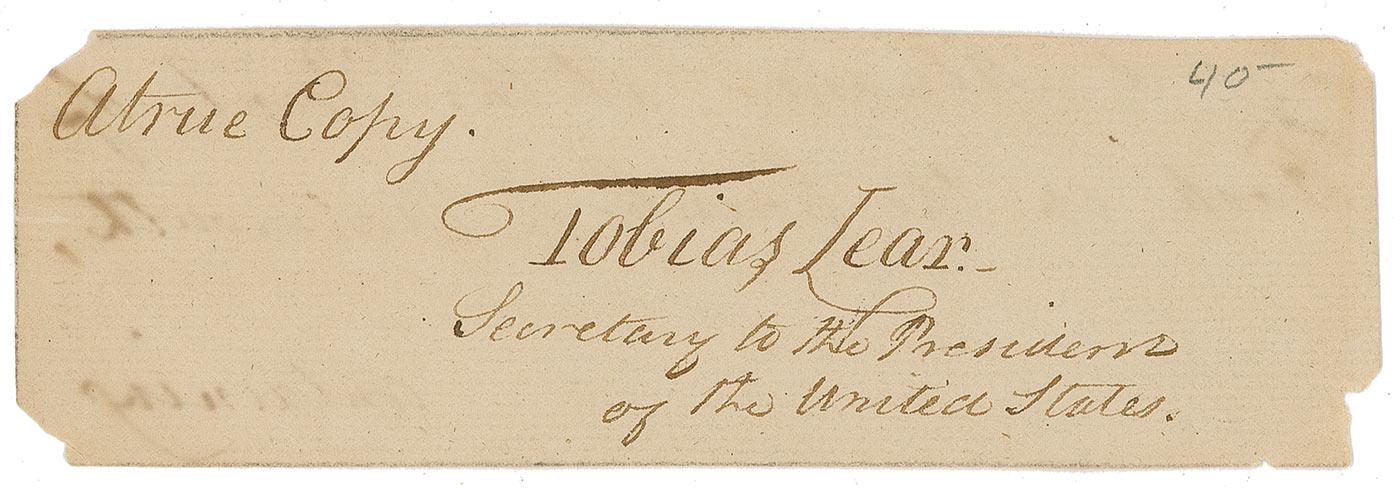 40-
A true Copy.
Tobias Lear.
Secretary to the President
of the United States.